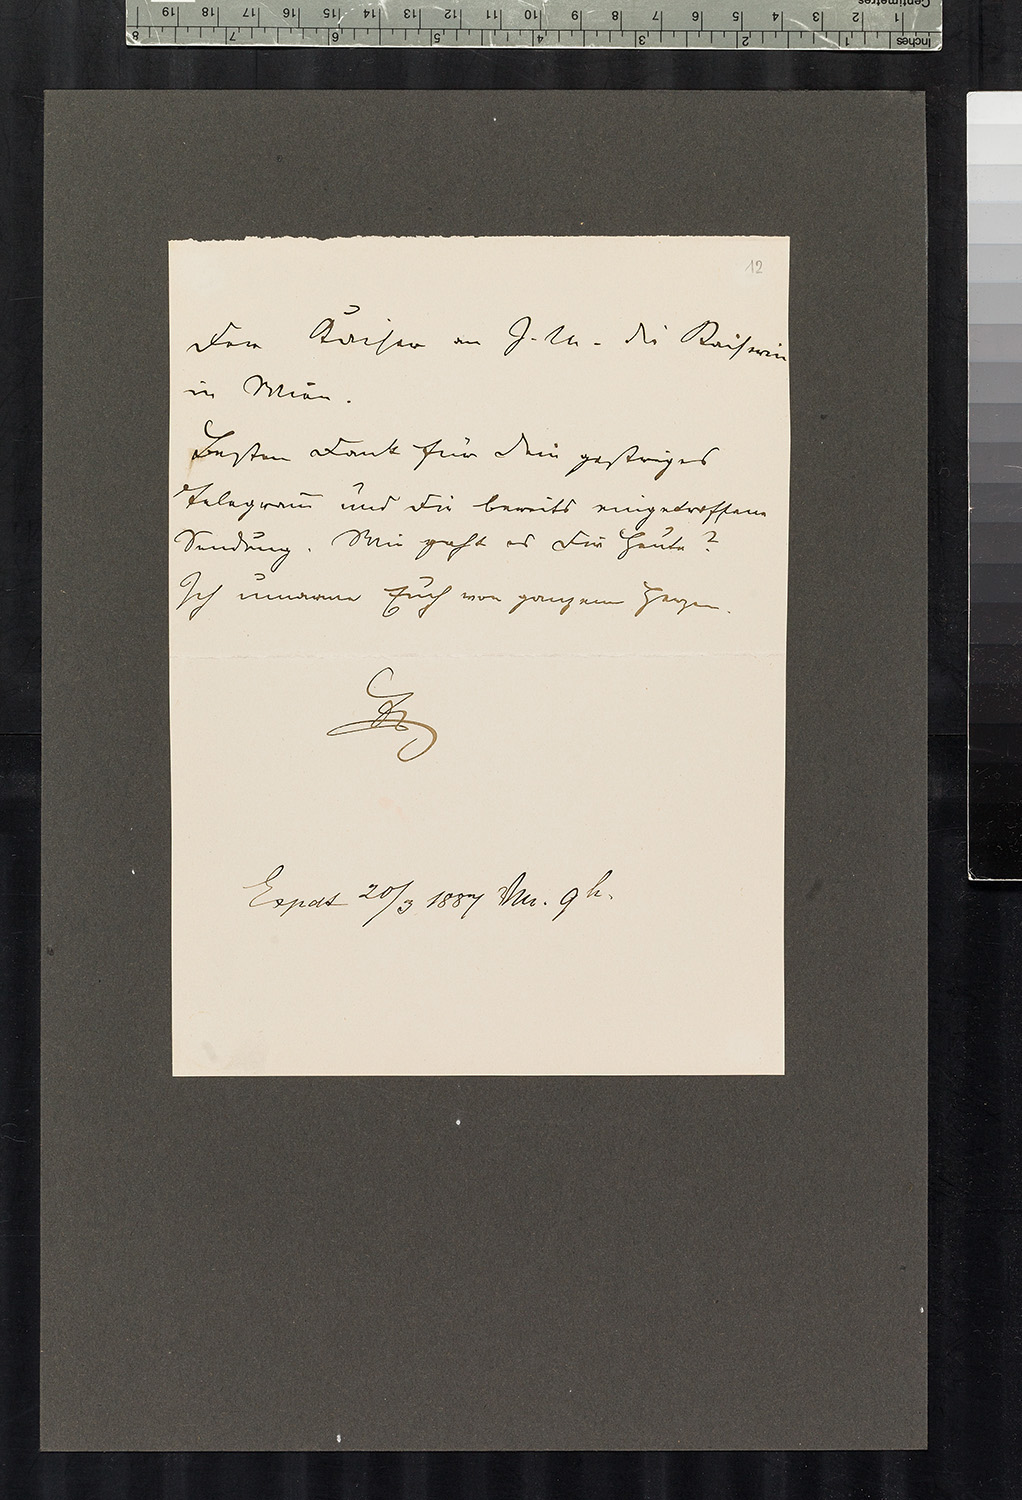 12
Der Kaiser an I. M. die Kaiserin
in Wien.
Besten Dank für Dein gestriges
Telegramm und die bereits eingetroffene
Sendung. Wie geht es Dir heute?
Ich umarme Euch von ganzem Herzen.
Expdt 20/3 1887 9h.
Centimetres
1 2 3 4 5 6 7 8 9 10 11 12 13 14 15 16 17 18 19
Inches
1 2 3 4 5 6 7 8